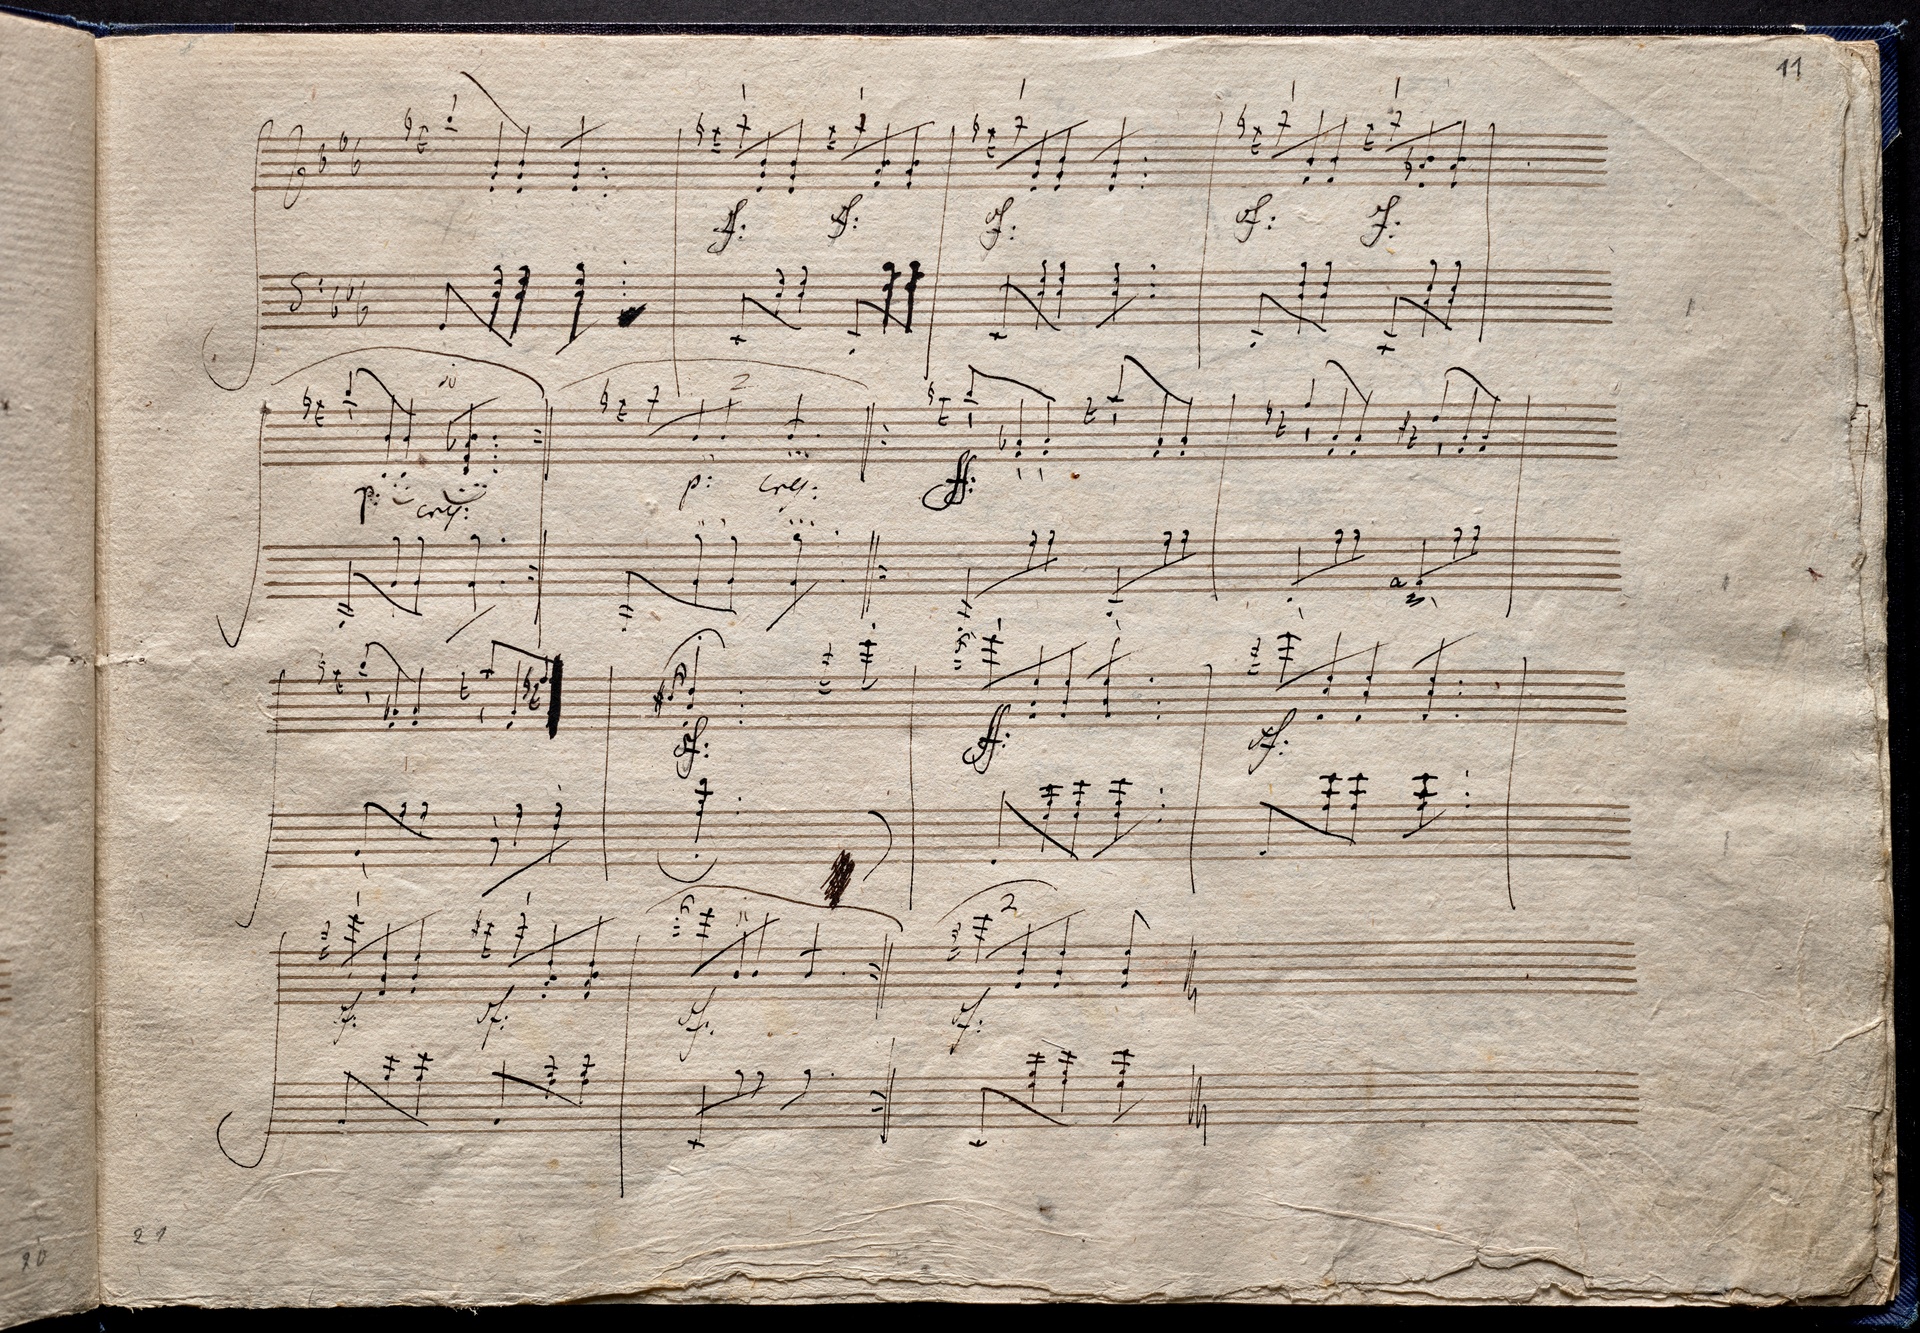 11
sf: sf: sf: sf: sf:
2
p: cresc: p: cresc: ff:
sf: ff: sf:
2
sf: sf: sf: sf:
21
20